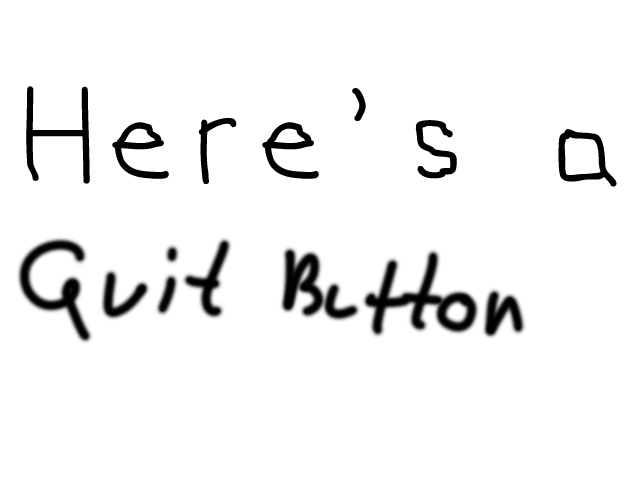 Here's a
Quit Button